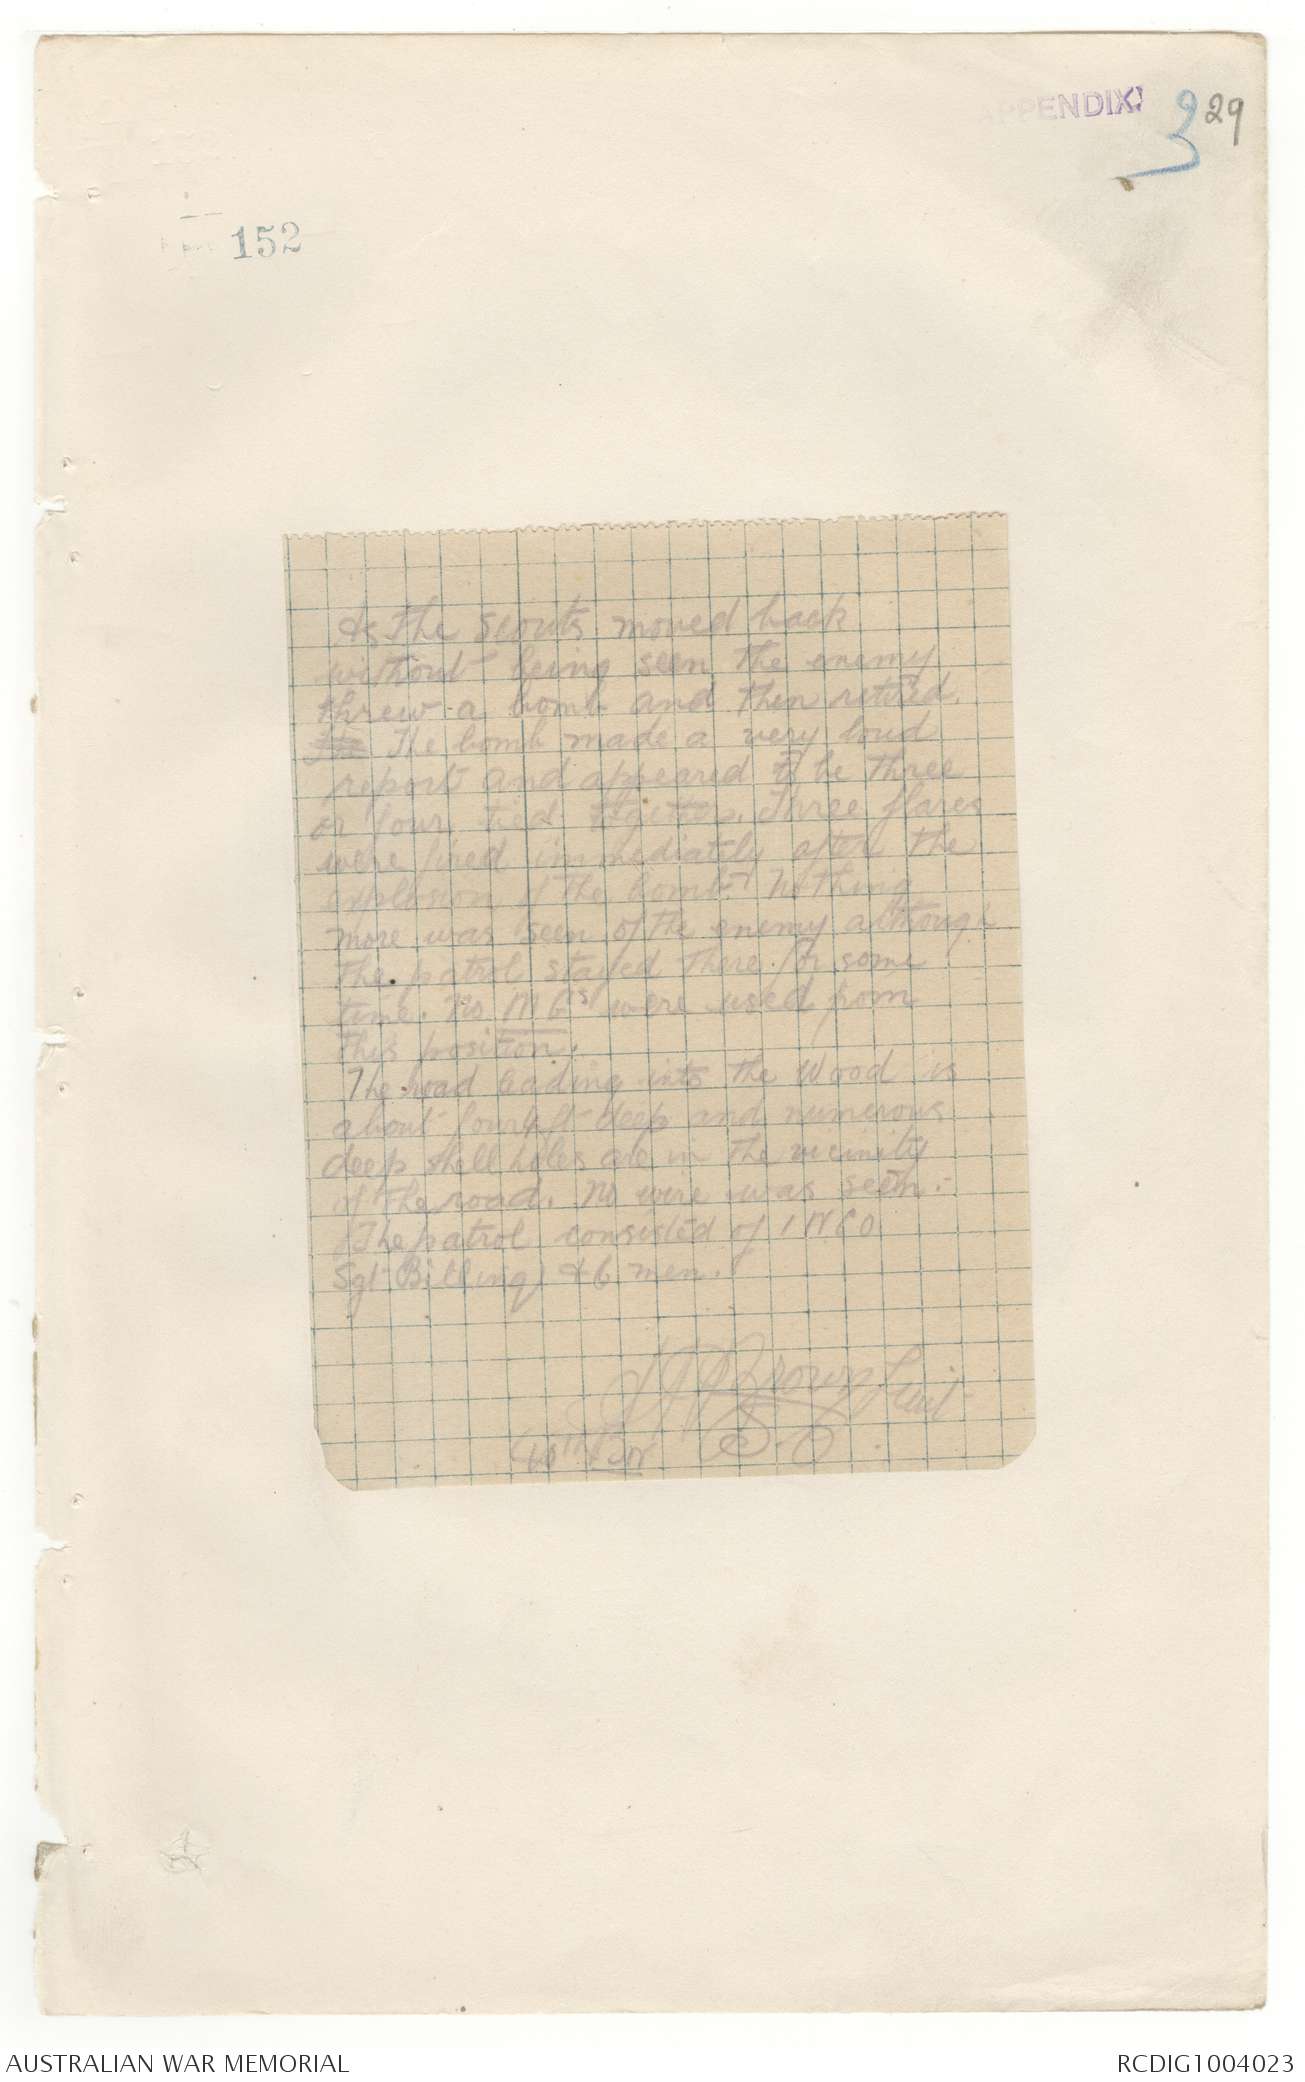 APPENDIX
3 29
152
As the scouts moved back
without being seen the enemy
threw a bomb and then retired.
The The bomb made a very loud
report and appeared to be three
or four tied together. Three flares
were fired immediately after the
explosion of the bomb. Nothing
more was seen of the enemy although
the patrol stayed there for some
time. No M Gs were used from
this position.
The road leading into the Wood is
about four ft deep and numerous
deep shell holes are in the vicinity
of the road. No wire was seen.
The patrol consisted of 1 NCO
Sgt Billing & 6 men.
Brown Lieut
AUSTRALIAN WAR MEMORIAL
RCDIG1004023